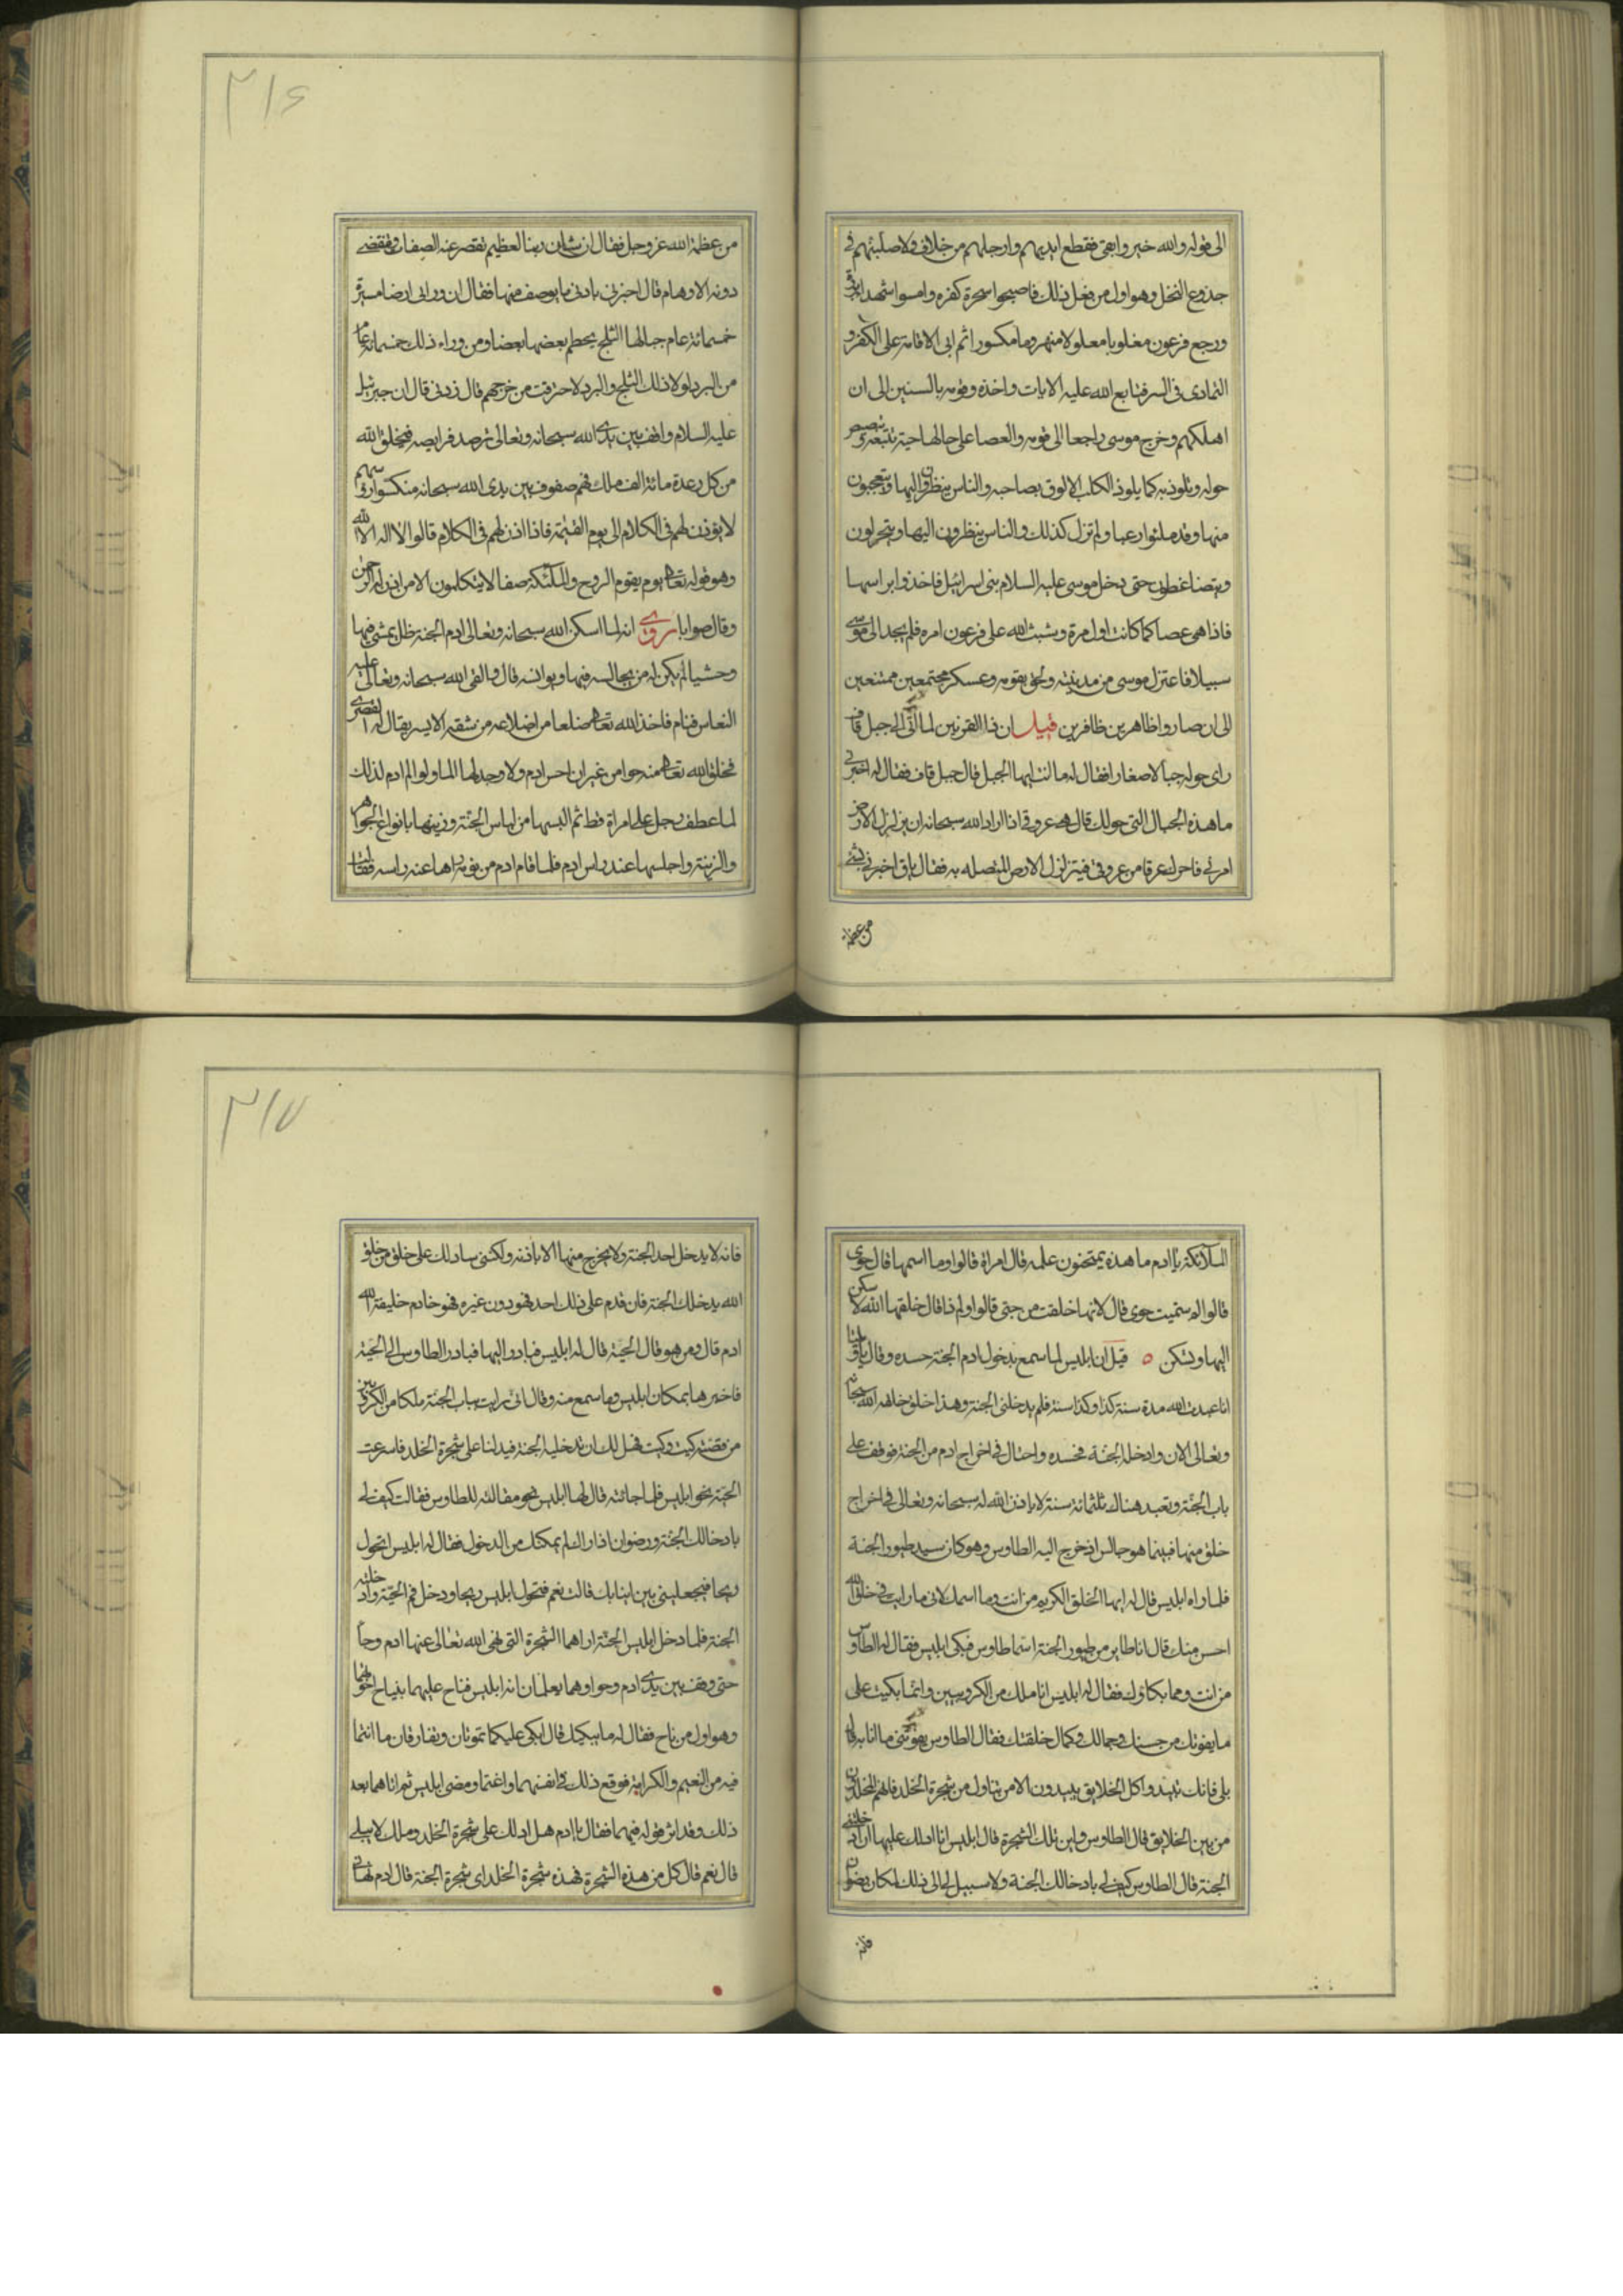 الى قوله والله خير وابقى فقطع ايديهم وارجلهم من خلاف ولاصلبنهم فى
جذوع النخل وهو اول من فعل ذلك فاصبحوا سحرة كفره وامسوا شهدا
ورجع فرعون مغلوبا معلولا منهزما مكسورا ثم ابى الا اقامة على الكفر و
التمادى فى السر فتابع الله عليه الايات واخذه وقومه بالسنين الى ان
اهلكهم وخرج موسى راجعا الى قومه والعصا على حالها حية تتبعه و تبصبص
حوله وتلوذ به كما يلوذ الكلب الالوف بصاحبه والناس ينظرون اليها ويتعجبون
منها وقد ملئوا رعبا ولم تزل كذلك والناس ينظرون اليها ويتحولون
ويتضاغطون حتى دخل موسى عليه السلام بنى اسرائيل فاخذوا براسها
فاذا هى عصا كما كانت اول مرة ويشبث الله على فرعون امره فلم يجد الى موسى
سبيلا فاعتزل موسى من مدينته ولحق بقومه وعسكر مجتمعين ممتنعين
الى ان صاروا ظاهرين ظافرين قيل ان ذا القرنين لما اتى الى جبل قاف
راى حوله جبالا صغارا فقال له ما انت ايها الجبل قال جبل قاف فقال له اخبرنى
ما هذه الجبال التى حولك قال هى عروقى اذا اراد الله سبحانه ان يزلزل الارض
امرنى فاحرك عرقا من عروقى فيتزلزل الارض المتصله به فقال ياق اخبرنى بشئ
من عظمة
٢١٦
من عظمة الله عز وجل فقال ان شان ربنا العظيم تقصر عنه الصفات وتنقضى
دونه الاوهام قال اخبرنى بادنى ما يوصف منها فقال ان ورائى ارضا مسيرة
خمسمائة عام جبالها الثلج يحطم بعضها بعضا ومن وراء ذلك خمسمائة عام
من البرد لولا ذلك الثلج والبرد لاحترقت من حر جهنم قال زدنى قال ان جبرئيل
عليه السلام واقف بين يدى الله سبحانه وتعالى ترعد فرايصه فيخلق الله
من كل رعدة مائة الف ملك فهم صفوف بين يدى الله سبحانه منكسوا رؤسهم
لا يؤذن لهم فى الكلام الى يوم القيمة فاذا اذن لهم فى الكلام قالوا لا اله الا الله
وهو قوله تعالى يوم يقوم الروح والملئكة صفا لا يتكلمون الا من اذن له الرحمن
وقال صوابا روى انه لما اسكن الله سبحانه وتعالى ادم الجنة ظل يمشى فيها
وحشيا لم يكن له من يجالسه فيها ويوانسه قال والقى الله سبحانه وتعالى عليه
النعاس فنام فاخذ الله تعالى ضلعا من اضلاعه من شقه الايسر يقال له القصرى
فخلق الله تعالى منه حوا من غير ان احس ادم ولا وجد لها الما ولو الم ادم لذلك
لما عطف رجل على امراة قط ثم البسها من لباس الجنة وزينها بانواع الجواهر
والزينة واجلسها عند راس ادم فلما قام ادم من نومه راها عند راسه فقالت
الملائكة يا ادم ما هذه يمتحنون علمه قال امراة قالوا وما اسمها قال حوى
قالوا لم سميت حوى قال لانها خلقت من حى قالوا ولم ذا قال خلقها الله لاسكن
اليها وتسكن ه قيل ان ابليس لما سمع بدخول ادم الجنة حسده وقال يا ويلتا
انا عبدت الله مدة سنة كذا وكذا سنة فلم يدخلنى الجنة وهذا خلق خلقه الله سبحانه
وتعالى الان وادخله الجنة فحسده واحتال فى اخراج ادم من الجنة فوقف على
باب الجنة وتعبد هناك ثلثمائة سنة لا ياذن الله له سبحانه وتعالى فى اخراج
خلق منها فبينما هو جالس اذ خرج اليه الطاوس وهو كان سيد طيور الجنة
فلما راه ابليس قال له ايها الخلق الكريم من انت وما اسمك لانى ما رايت فى خلق الله
احسن منك قال انا طاير من طيور الجنة اسمى طاوس فبكى ابليس فقال له الطاوس
من انت ومما بكاؤك فقال له ابليس انا ملك من الكروبيين وانما بكيت على
ما يفوتك من حسنك وجمالك وكمال خلقتك فقال الطاوس يفوتنى ما انا به قال
بلى فانك تبيد وكل الخلايق يبيدون الا من تناول من شجرة الخلد فانهم المخلدون
من بين الخلايق قال الطاوس واين تلك الشجرة قال ابليس انا ادلك عليها ان ادخلتنى
الجنة قال الطاوس كيف لى بادخالك الجنة ولا سبيل لى الى ذلك لمكان رضوان
فانه
٢١٧
فانه لا يدخل احد الجنة ولا يخرج منها الا باذنه ولكنى سادلك على خلق من خلق
الله يدخلك الجنة فان قدم على ذلك احد فهو دون غيره فهو خادم خليفة الله
ادم قال ومن هو قال الحية قال له ابليس فبادر اليها فبادر الطاوس الى الحية
فاخبرها بمكان ابليس وما سمع منه وقال انى رايت بباب الجنة ملكا من الكروبين
من قضته كيت وكيت فهل لك ان تدخليه الجنة فيدلنا على شجرة الخلد فاسرعت
الحية نحو ابليس فلما جائته قال لها ابليس نحو مقالته للطاوس فقالت كيف لى
بادخالك الجنة ورضوان اذا راك لم يمكنك من الدخول فقال له ابليس اتحول
ريحا فتجعلينى بين انيابك قالت نعم فتحول ابليس ريحا ودخل فم الحية وادخلته
الجنة فلما دخل ابليس الجنة اراهما الشجرة التى نهى الله تعالى عنها ادم وجآ
حتى وقف بين يدى ادم وحوا وهما يعلمان انه ابليس فناح عليهما بنياح احزنهما
وهو اول من ناح فقال له ما يبكيك قال ابكى عليكما تموتان وتفارقان ما انتما
فيه من النعيم والكرامة فوقع ذلك فى انفسهما واغتما ومضى ابليس ثم اتاهما بعد
ذلك وقد اثر قوله فيهما فقال يا ادم هل ادلك على شجرة الخلد وملك لا يبلى
قال نعم قال كل من هذه الشجرة فهذه شجرة الخلد اى شجرة الجنة قال ادم نهانى